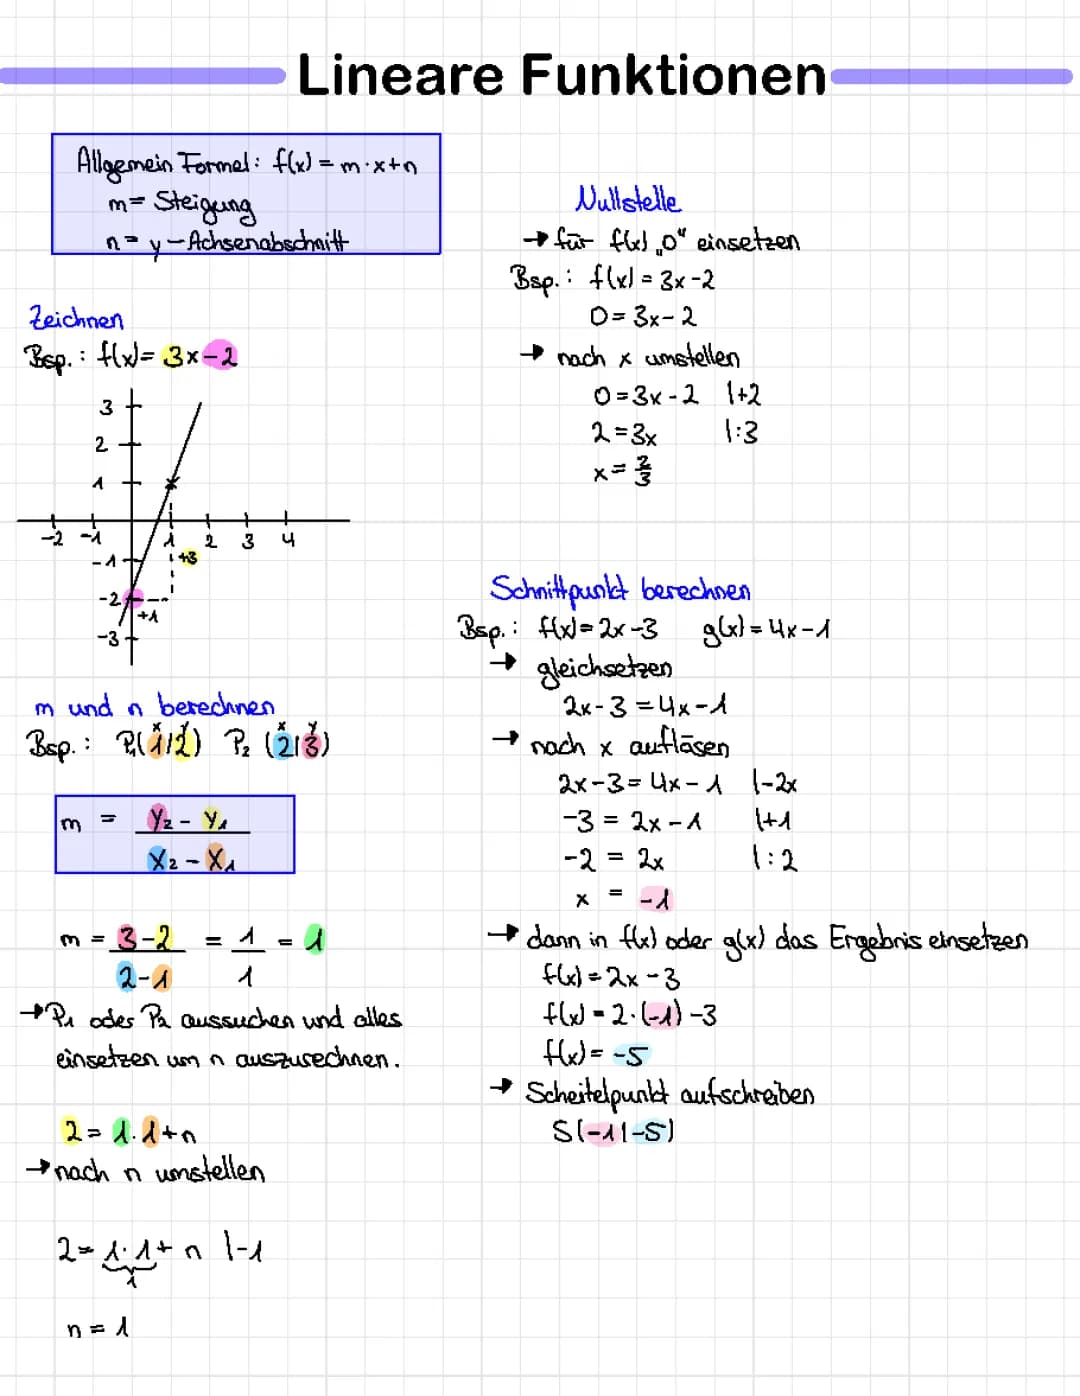 Lineare Funktionen
Allgemein Formel: f(x) = m·x+n
m= Steigung
n= y-Achsenabschnitt
Zeichnen
Bsp.: f(x)= 3x-2
3
2
1
-2 -1 1 2 3 4
-1
+3
-2
+1
-3
m und n berechnen
x y x y
Bsp.: P₁(1/2) P₂ (2|3)
m = y₂ - y₁
x₂ - x₁
m = 3-2 = 1 = 1
2-1 1
→ P₁ oder P₂ aussuchen und alles
einsetzen um n auszurechnen.
2= 1·1+n
→ nach n umstellen
2= 1·1+ n |-1
1
n = 1
Nullstelle
→ für f(x) „0" einsetzen
Bsp.: f(x) = 3x-2
0= 3x-2
→ nach x umstellen
0=3x-2 |+2
2=3x |:3
x= 2/3
Schnittpunkt berechnen
Bsp.: f(x)=2x-3 g(x)=4x-1
→ gleichsetzen
2x-3=4x-1
→ nach x auflösen
2x-3=4x-1 |-2x
-3 = 2x-1 |+1
-2 = 2x |:2
x = -1
→ dann in f(x) oder g(x) das Ergebnis einsetzen
f(x)=2x-3
f(x)=2·(-1)-3
f(x)= -5
→ Scheitelpunkt aufschreiben
S(-1|-5)